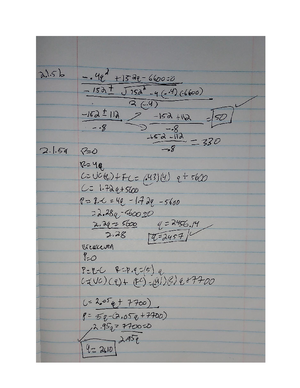 2.1.5b -.4q² + 152q - 6600 = 0
-152 ± √152² - 4(-.4)(-6600)
2(-.4)
-152 ± 112 → -152 + 112 = 50
-.8 -.8
-152 - 112 = 330
-.8
2.1.5a P=0
R = 4q
C = UC(q) + FC = (.43)(4) q + 5600
C = 1.72q + 5600
P = R-C = 4q - 1.72q - 5600
= 2.28q - 5600 = 0
2.28q = 5600 q = 2456.14
2.28 q = 2457
P=0
P = R-C R = P.q = (5) q
C = (UC)(q) + (FC) = (.41)(5) q + 7700
C = 2.05q + 7700)
P = 5q - (2.05q + 7700)
2.95q = 7700 = 0
2.95q
q = 2610